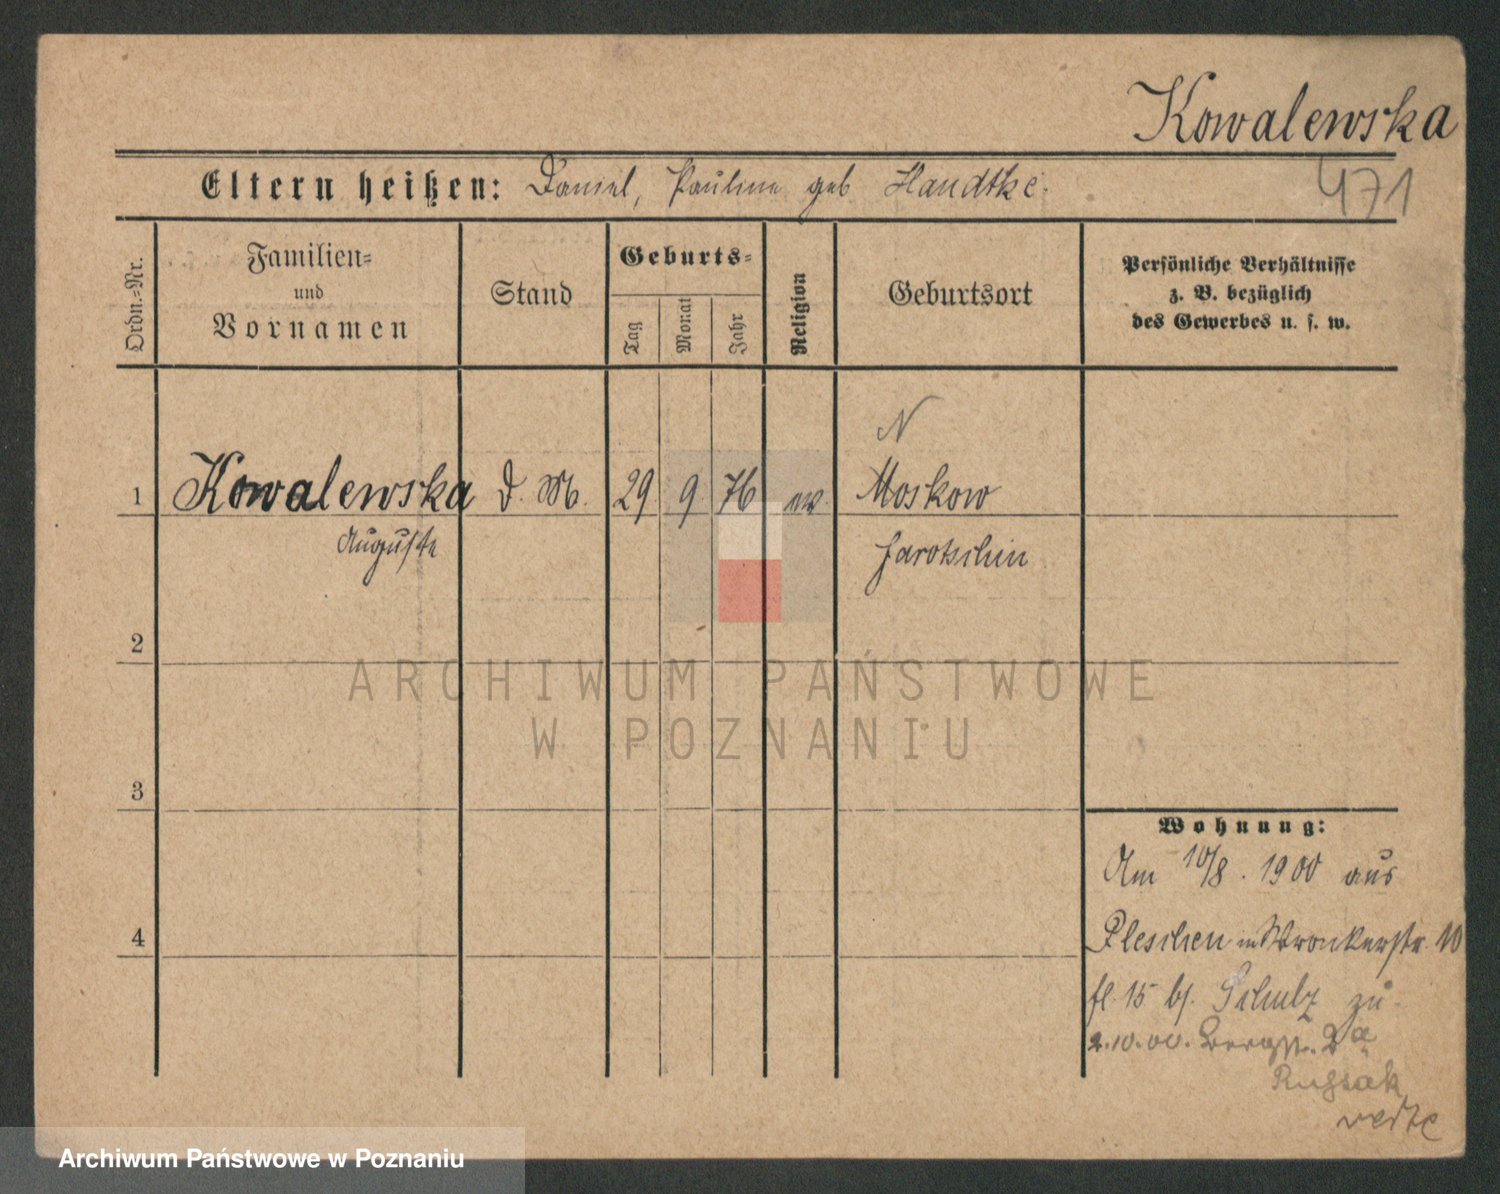 Kowalewska
471
Eltern heißen: Daniel, Pauline geb Handtke.
Ordn.-Nr.
Familien-
und
Vornamen
Stand
Geburts-
Tag
Monat
Jahr
Religion
Geburtsort
Persönliche Verhältnisse
z. B. bezüglich
des Gewerbes u. s. w.
N
1 Kowalewska D. M. 29 9 76 ev. Moskow
Auguste Jarotschin
2
3
4
Wohnung:
Am 10/8. 1900 aus
Pleschen in Wronkerstr. 10
fl. 15 bf. Schulz zu.
2.10.00. Bergstr. 2a
verte
ARCHIWUM PAŃSTWOWE
W POZNANIU
Archiwum Państwowe w Poznaniu